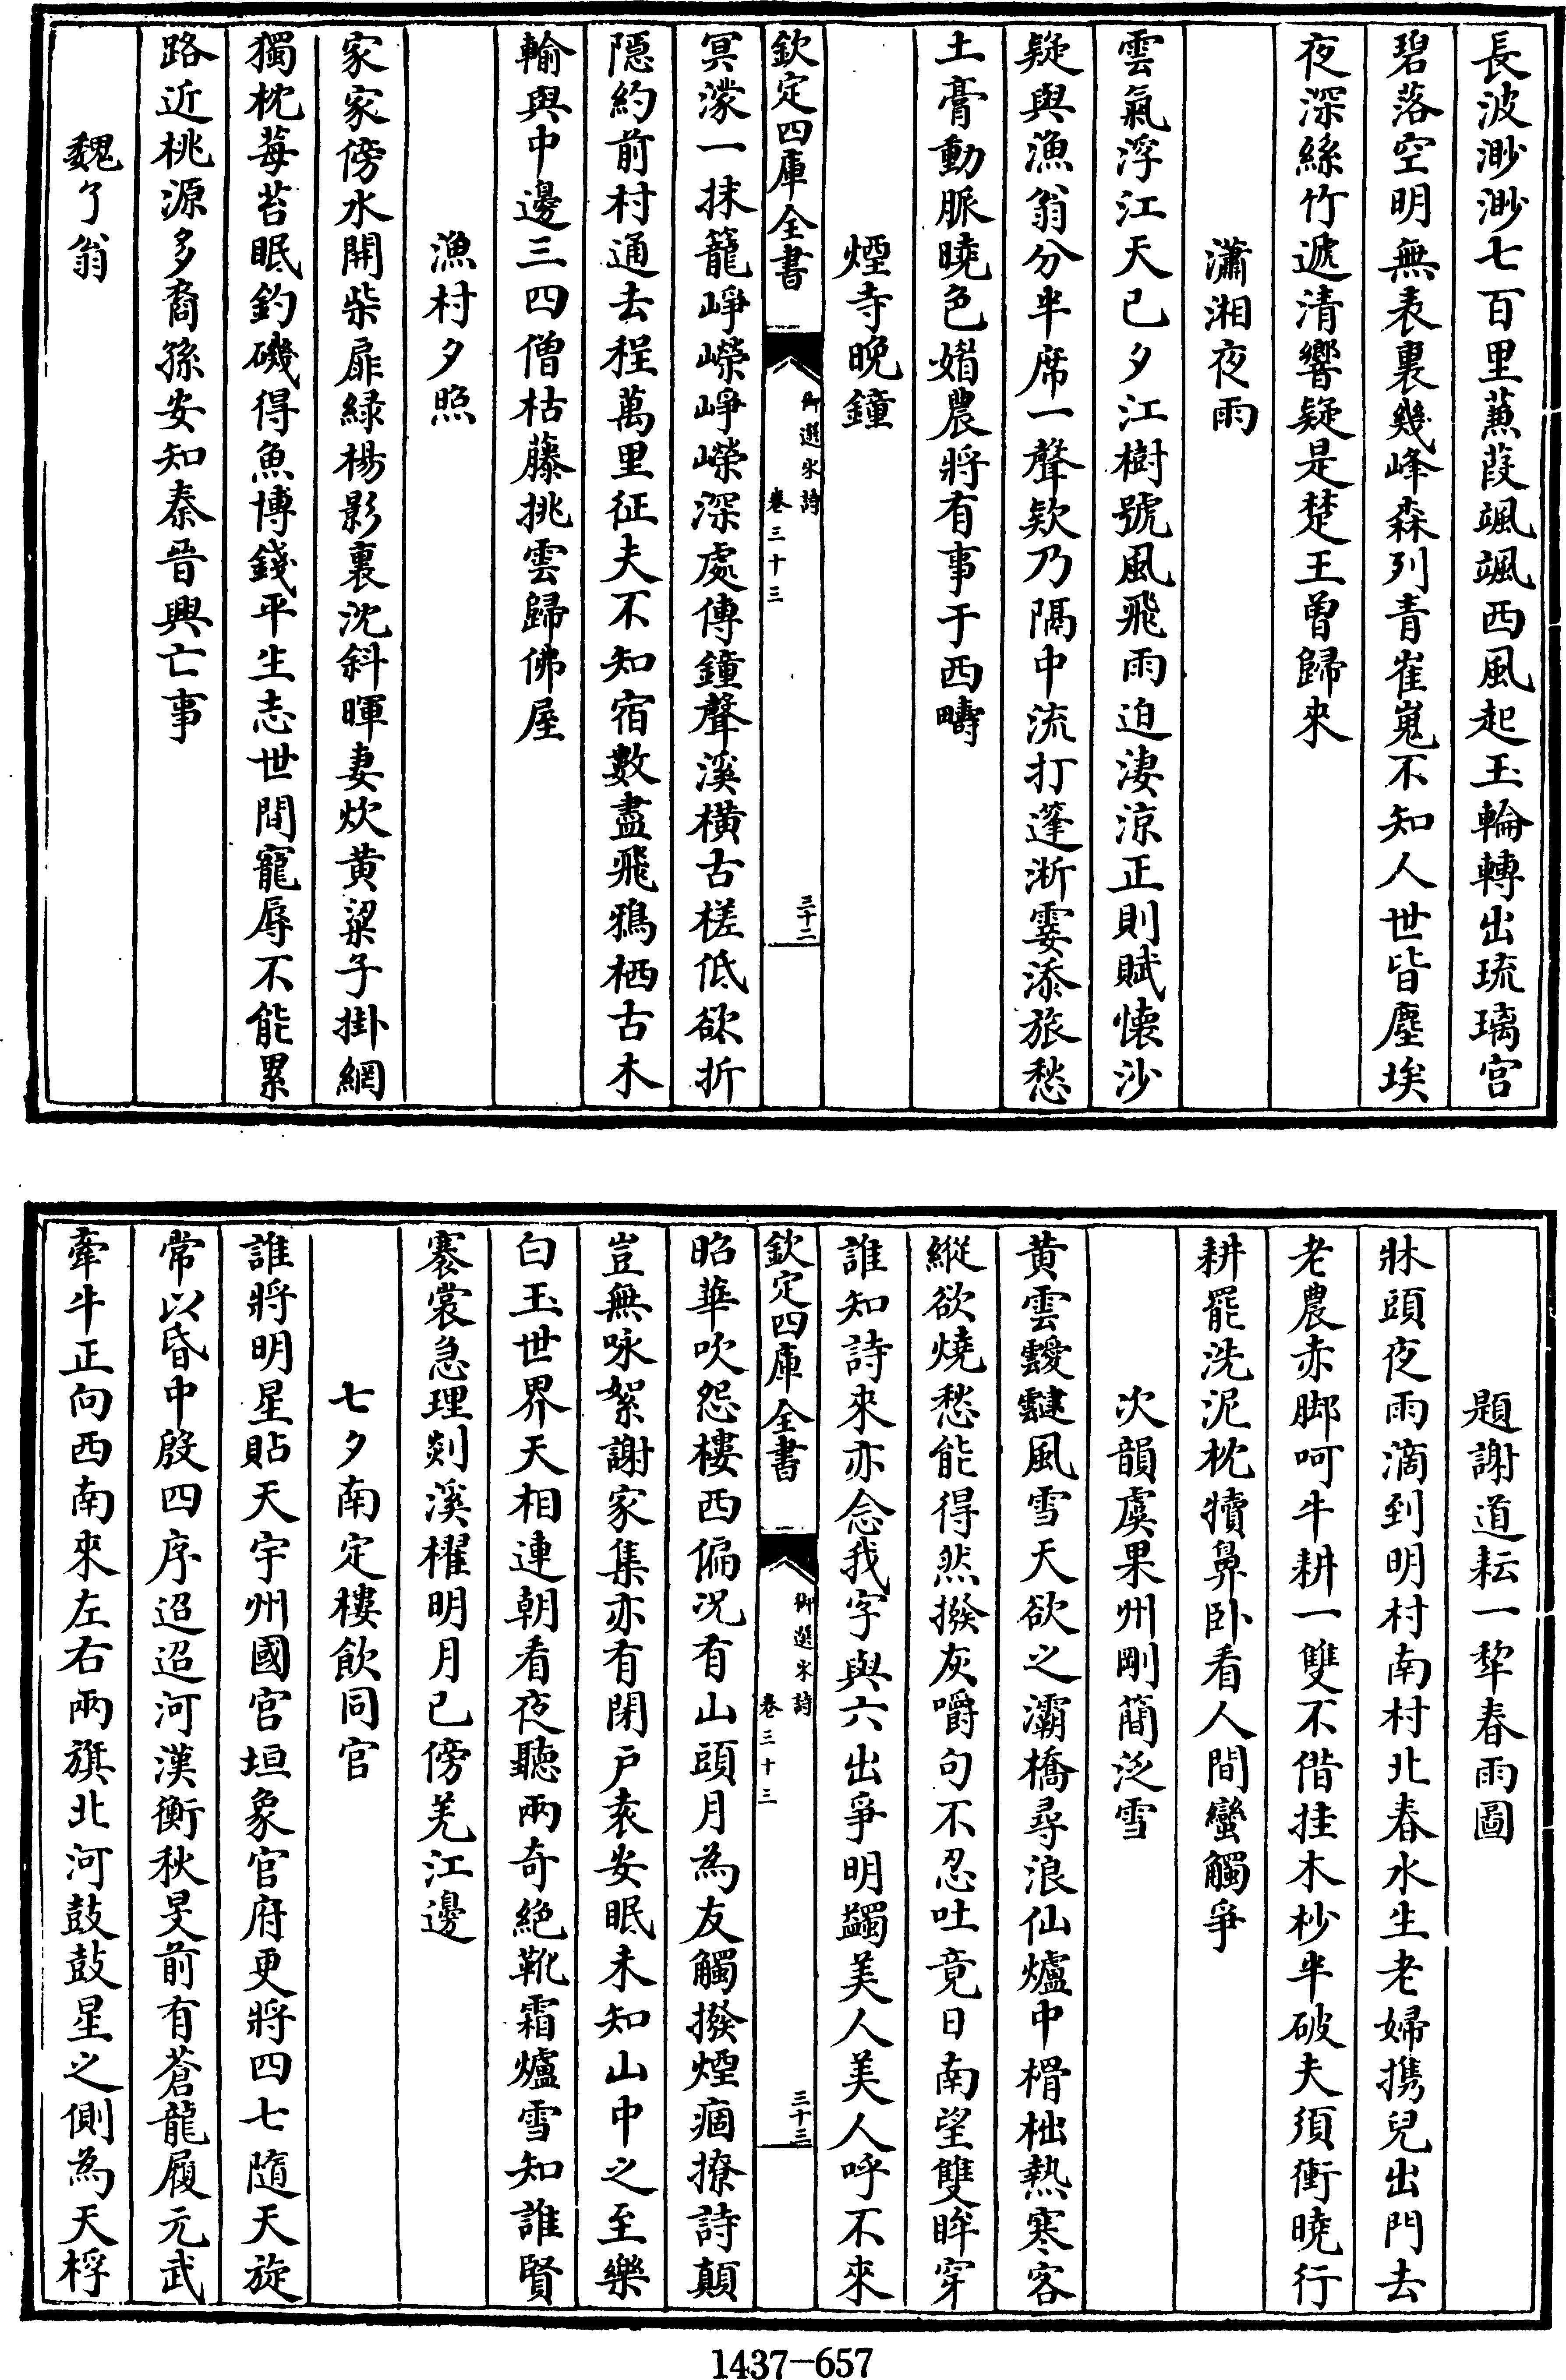 長波渺渺七百里蒹葭颯颯西風起玉輪轉出琉璃宮
碧落空明無表裏幾峰森列青崔嵬不知人世皆塵埃
夜深絲竹遞清響疑是楚王曾歸來
瀟湘夜雨
雲氣浮江天已夕江樹號風飛雨迫淒涼正則賦懷沙
疑與漁翁分半席一聲欸乃隔中流打蓬淅霎添旅愁
土膏動脈曉色媚農將有事于西疇
煙寺晚鐘
欽定四庫全書
御選宋詩
卷三十三
三十二
冥濛一抹籠崢嶸崢嶸深處傳鐘聲溪橫古槎低欲折
隱約前村通去程萬里征夫不知宿數盡飛鴉栖古木
輸與中邊三四僧枯藤挑雲歸佛屋
漁村夕照
家家傍水開柴扉緑楊影裏沈斜暉妻炊黄粱子掛網
獨枕莓苔眠釣磯得魚博錢平生志世間寵辱不能累
路近桃源多裔孫安知秦晉興亡事
魏了翁
題謝道耘一犂春雨圖
牀頭夜雨滴到明村南村北春水生老婦携兒出門去
老農赤脚呵牛耕一雙不借挂木杪半破夫須衝曉行
耕罷洗泥枕犢鼻卧看人間蠻觸爭
次韻虞果州剛簡泛雪
黄雲靉靆風雪天欲之灞橋尋浪仙爐中榾柮熱寒客
縱欲燒愁能得然撥灰嚼句不忍吐竟日南望雙眸穿
誰知詩來亦念我字與六出爭明蠲美人美人呼不來
欽定四庫全書
御選宋詩
卷三十三
三十三
昭華吹怨樓西偏況有山頭月為友觸撥煙痼撩詩顛
豈無咏絮謝家集亦有閉户袁安眠未知山中之至樂
白玉世界天相連朝看夜聽兩奇絶靴霜爐雪知誰賢
褰裳急理剡溪櫂明月已傍羌江邊
七夕南定樓飲同官
誰將明星貼天宇州國宫垣象官府更將四七隨天旋
常以昏中啟四序迢迢河漢衡秋旻前有蒼龍履元武
牽牛正向西南來左右兩旗北河鼓鼓星之側為天桴
1437-657